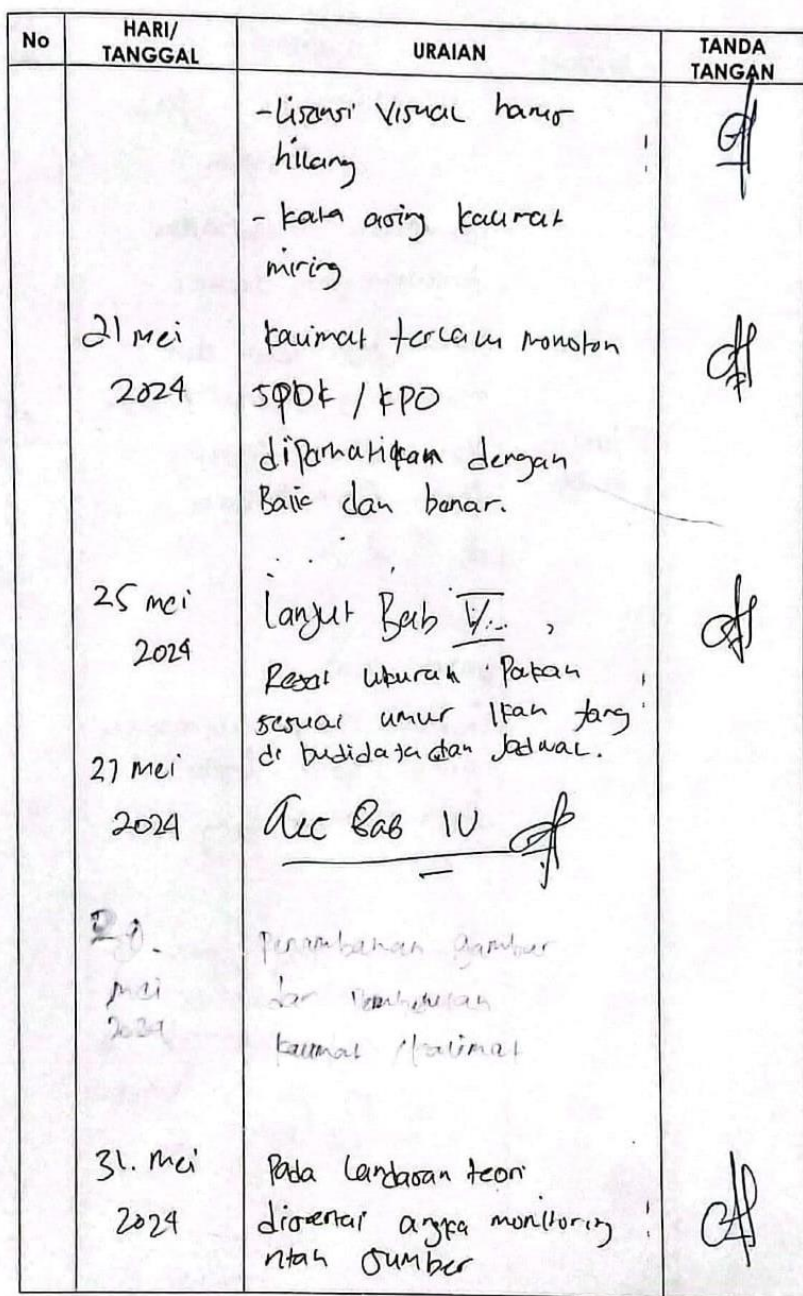 No HARI/ TANGGAL URAIAN TANDA TANGAN
- Lisensi Visual harus
hilang
- kata asing kalimat
miring
21 mei kalimat terlalu monoton
2024 SPOK / KPO
diparhatikan dengan
Baik dan benar.
25 mei Lanjut Bab
2024 ukuran Pakan
sesuai umur Ikan yang
di budidaya dan Jadwal.
27 mei
2024 acc Bab IV
mei Penambahan gambar
2024 dan
kalimat / kalimat
31. Mei Pada Landasan teori
2024 angka monitoring
Sumber